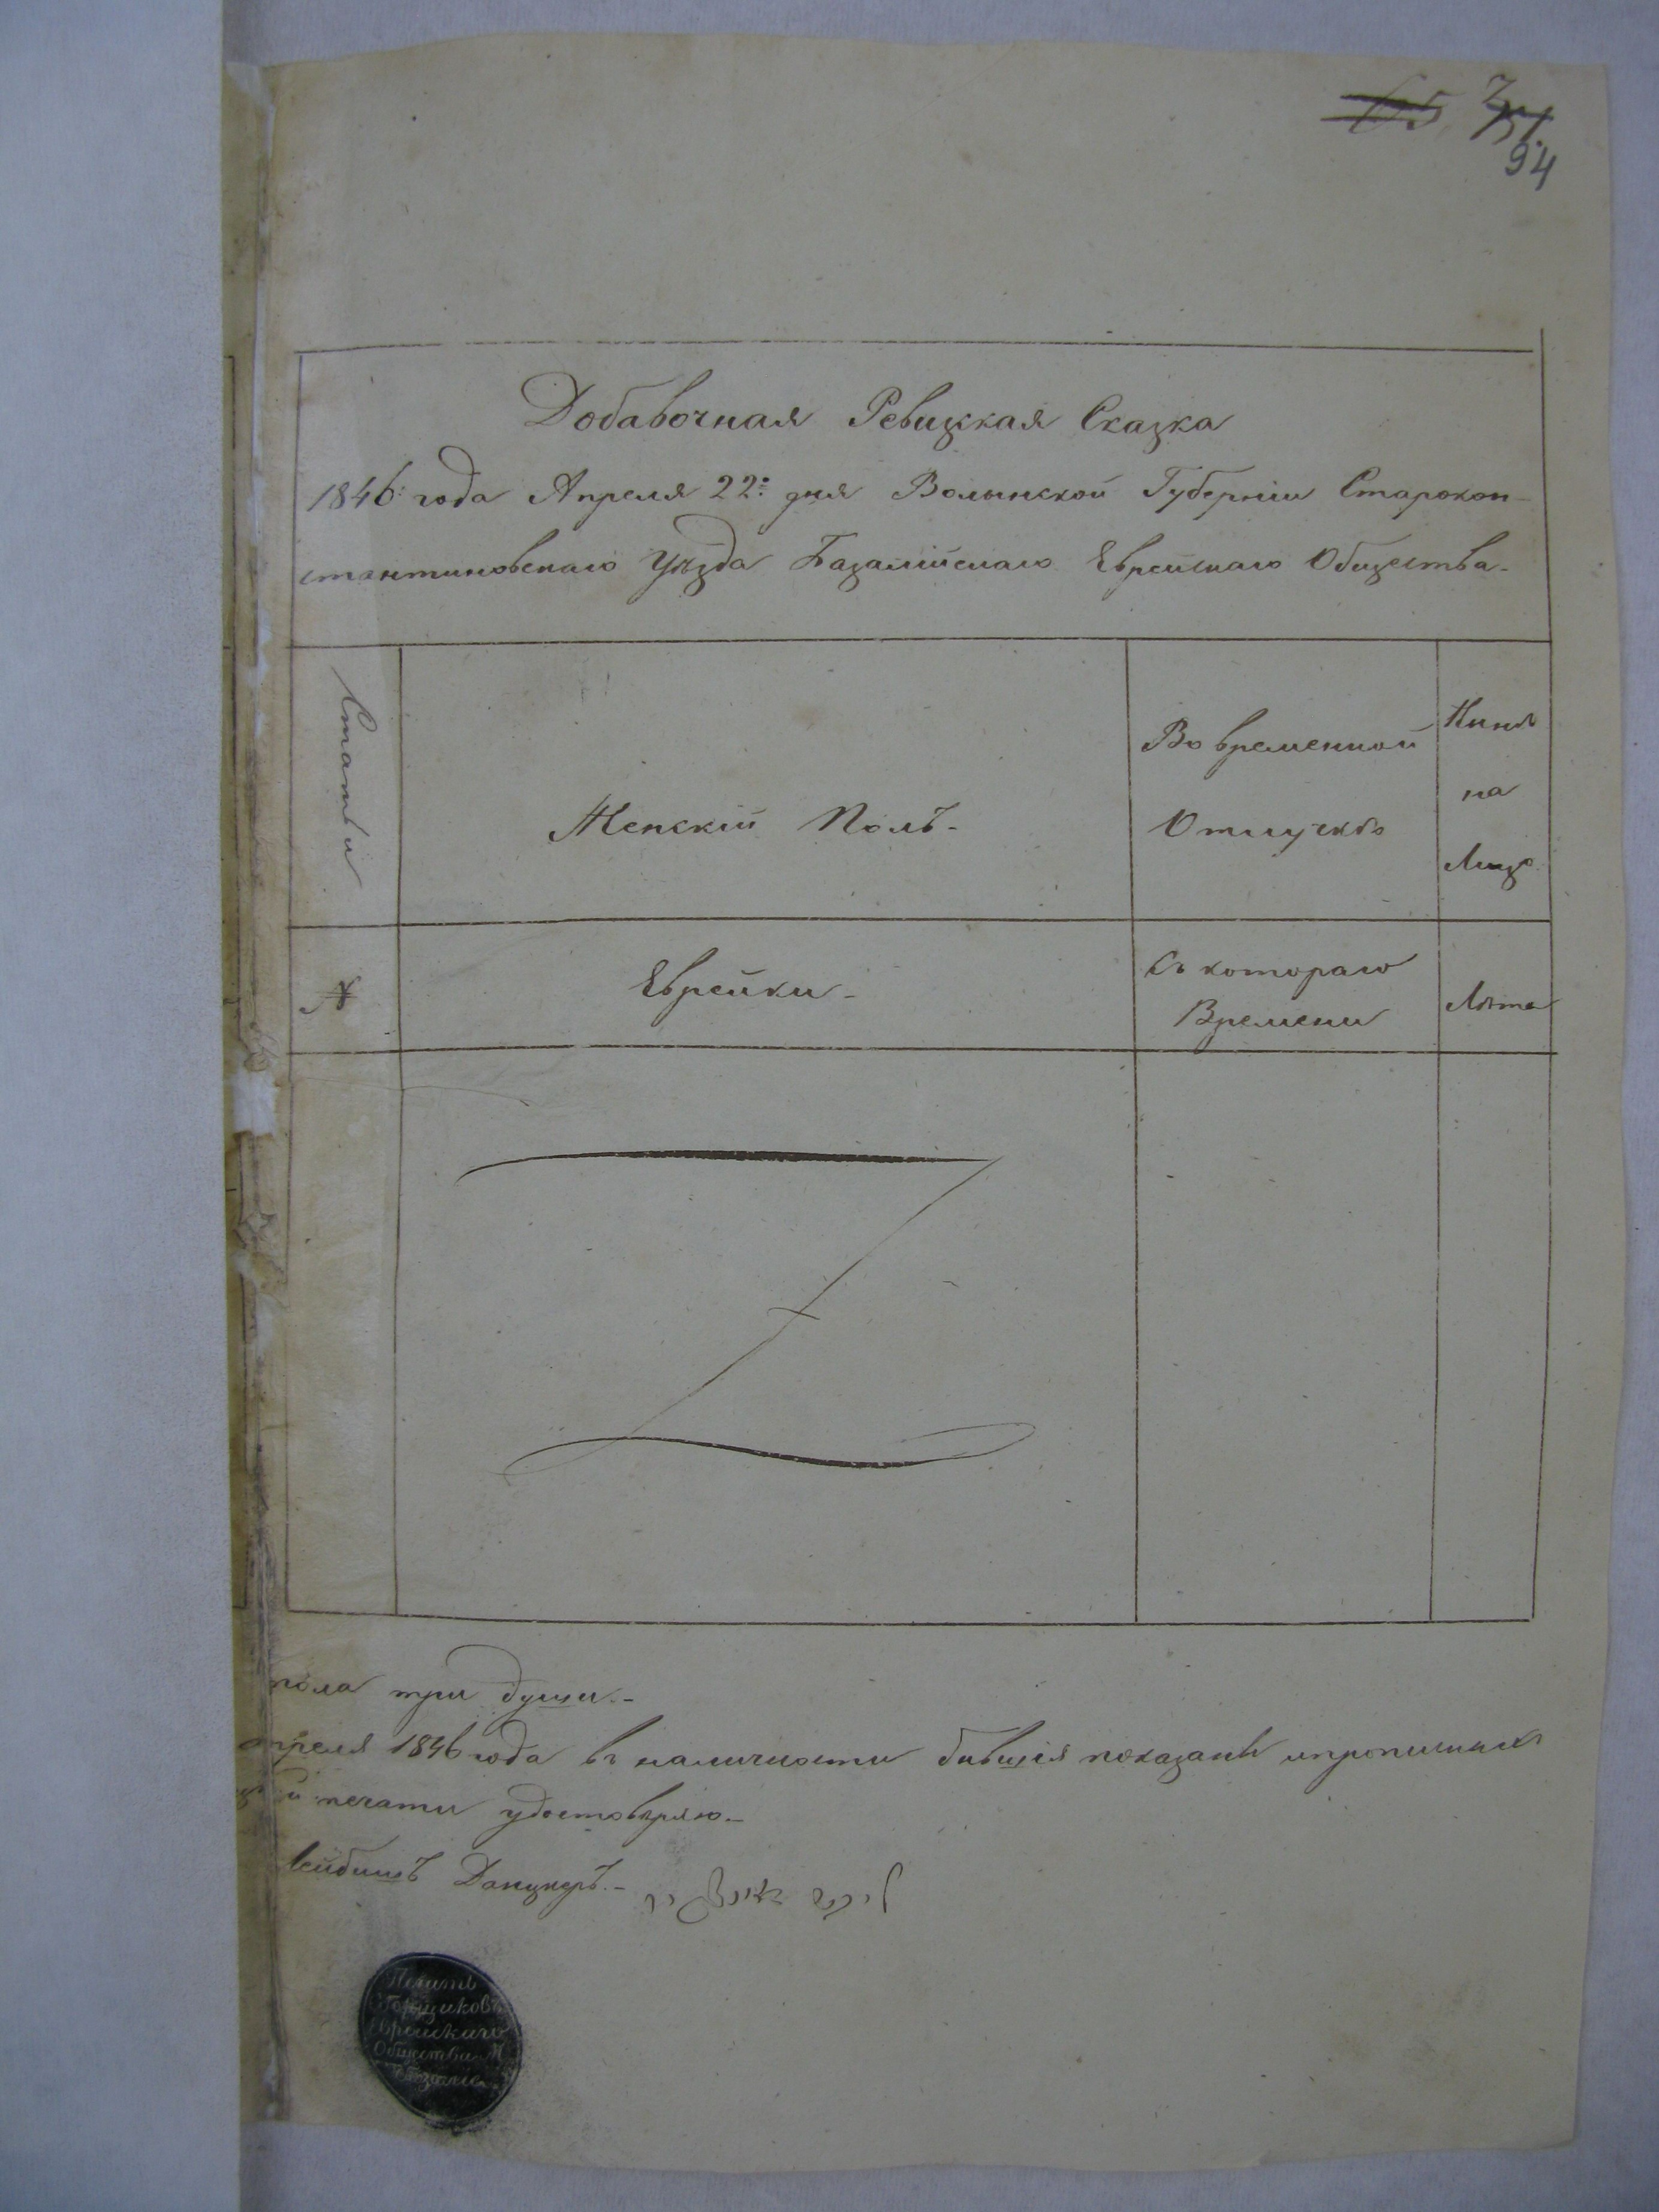 65 751.
94
Добавочная Ревизкая Сказка
1846: года Апреля 22: дня Волынской Губернии Старокон-
стантиновскаго Уѣзда Базалійскаго Еврейскаго Общества.
Статьи
Женскій Полъ.
Во временной
Отлучкѣ
Нынѣ
на
Лицо
Еврейки.
Съ котораго
Времени
Лѣта
пола три души.
преля 1846 года въ наличности бывшія показаны
печати удостовѣряю.
Лейбишъ Данцкеръ.
Печать
Зборщиковъ
Еврейскаго
Общества М
Базаліе